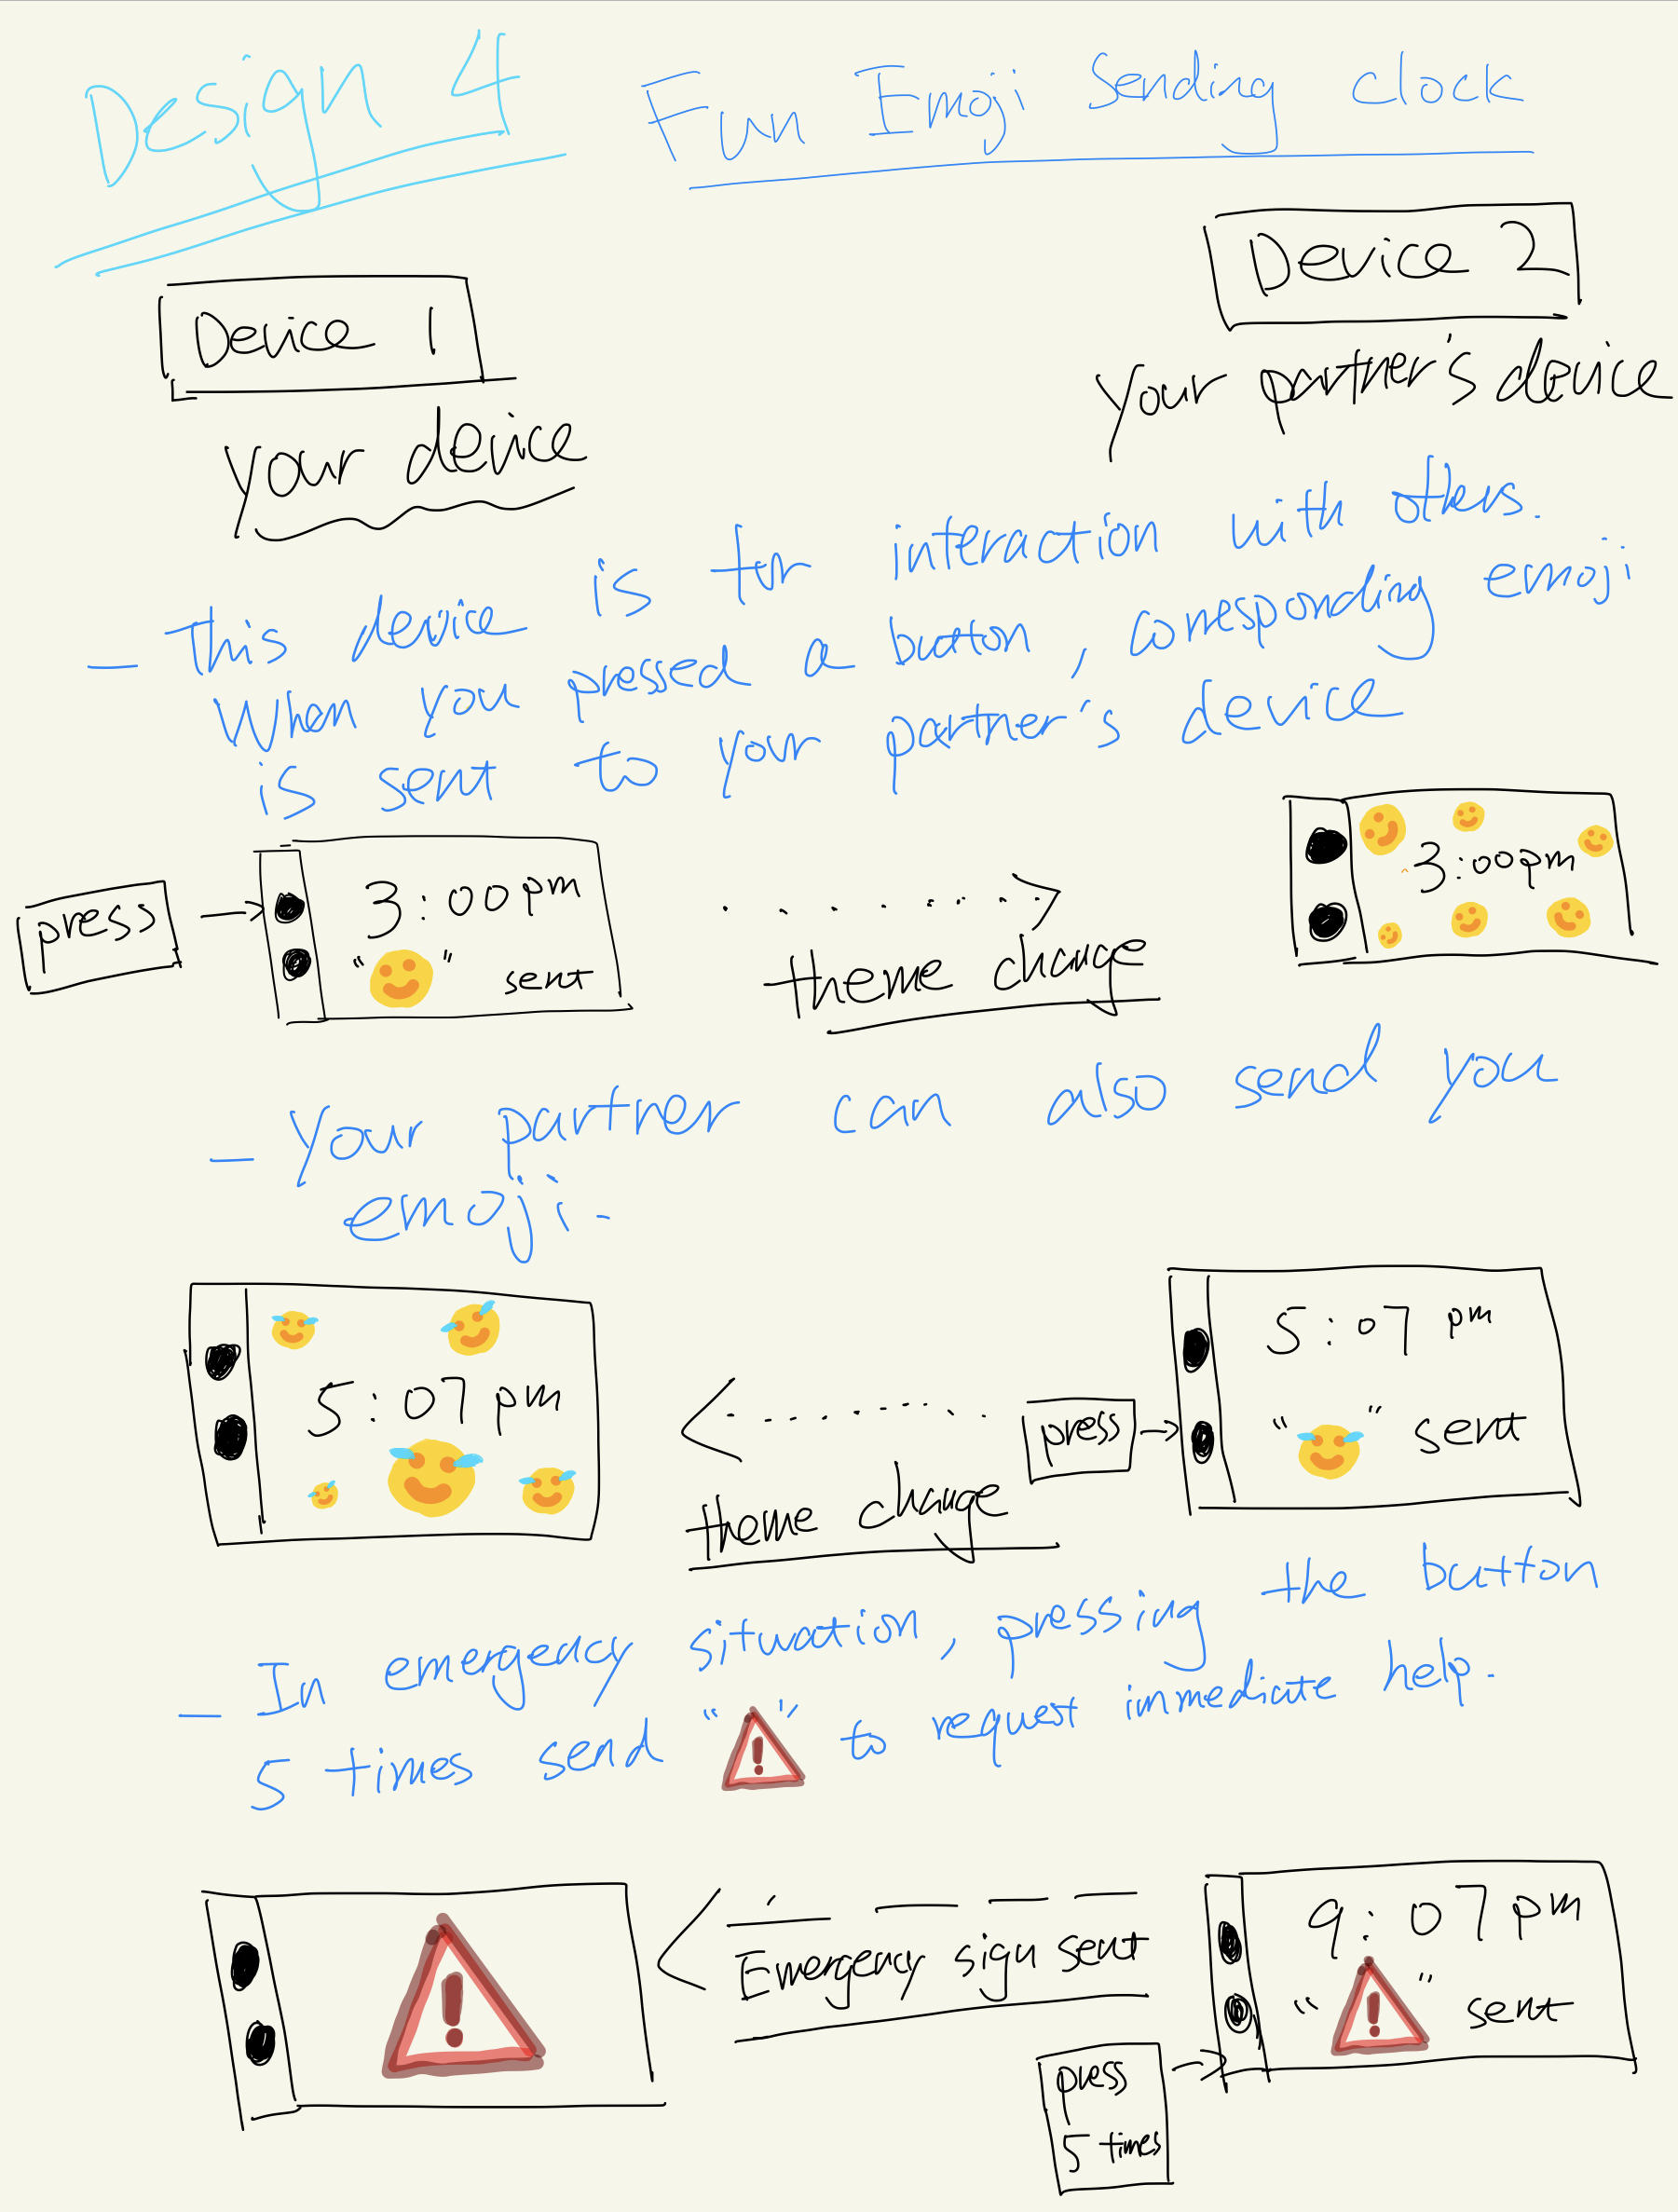 Design 4
Fun Emoji Sending clock
Device 1
Device 2
your device
your partner's device
- This device is for interaction with others.
When you pressed a button, corresponding emoji
is sent to your partner's device
press
3:00pm
"😊" sent
theme change
3:00pm
- Your partner can also send you
emoji.
5:07 pm
theme change
press
5:07 pm
"😂" sent
- In emergency situation, pressing the button
5 times send "⚠" to request immediate help.
Emergency sign sent
9:07 pm
"⚠" sent
press
5 times